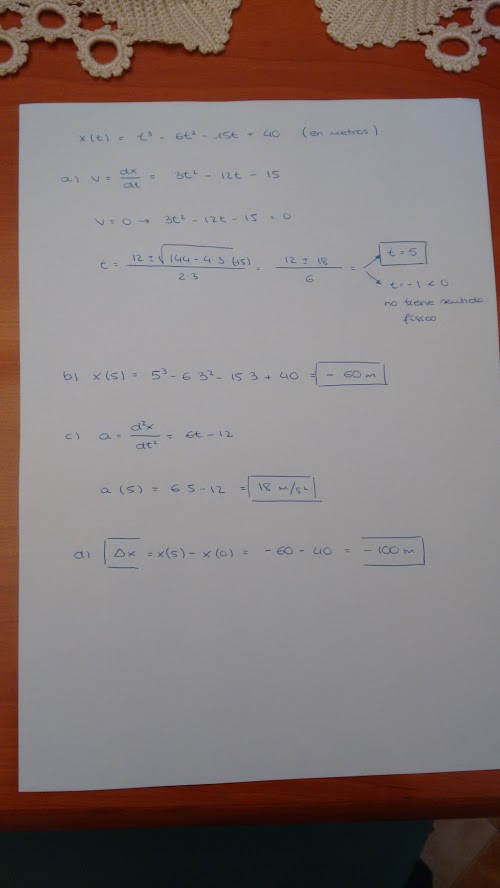 x(t) = t³ - 6t² - 15t + 40 (en metros)
a) v = dx/dt = 3t² - 12t - 15
v=0 → 3t² - 12t - 15 = 0
t = (12 ± √(144 - 4·3·(-15)))/(2·3) = (12 ± 18)/6 = t=5
t=-1<0
no tiene sentido
físico
b) x(5) = 5³ - 6·3² - 15·3 + 40 = - 60 m
c) a = d²x/dt² = 6t-12
a(5) = 6·5-12 = 18 m/s²
d) Δx = x(5) - x(0) = -60 - 40 = -100 m